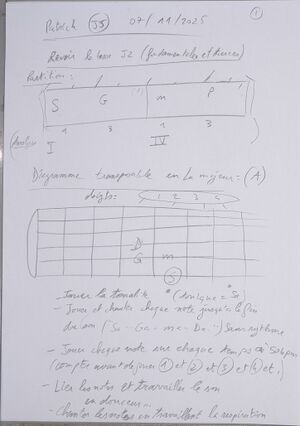 Patrick (J5) 07/11/2025 ①
Revoir le cours J2 (fondamentales et tierces)
Partition :
S G m P
1 3 1 3
(Analyse) I IV
Diagramme transposable en La majeur = (A)
doigts : 1 2 3 4
D
G m
S
- Jouer la tonalité * (tonique = "Sa
- Jouer et chanter chaque note jusqu'à la fin
du son (Sa - Ga - ma - Da ..) Sans rythme
- Jouer chaque note sur chaque temps à 50 bpm
(compter avant de jouer ① et ② et ③ et ④ et.)
- Lier les notes et travailler le son
en douceur...
- Chanter les notes en travaillant la respiration